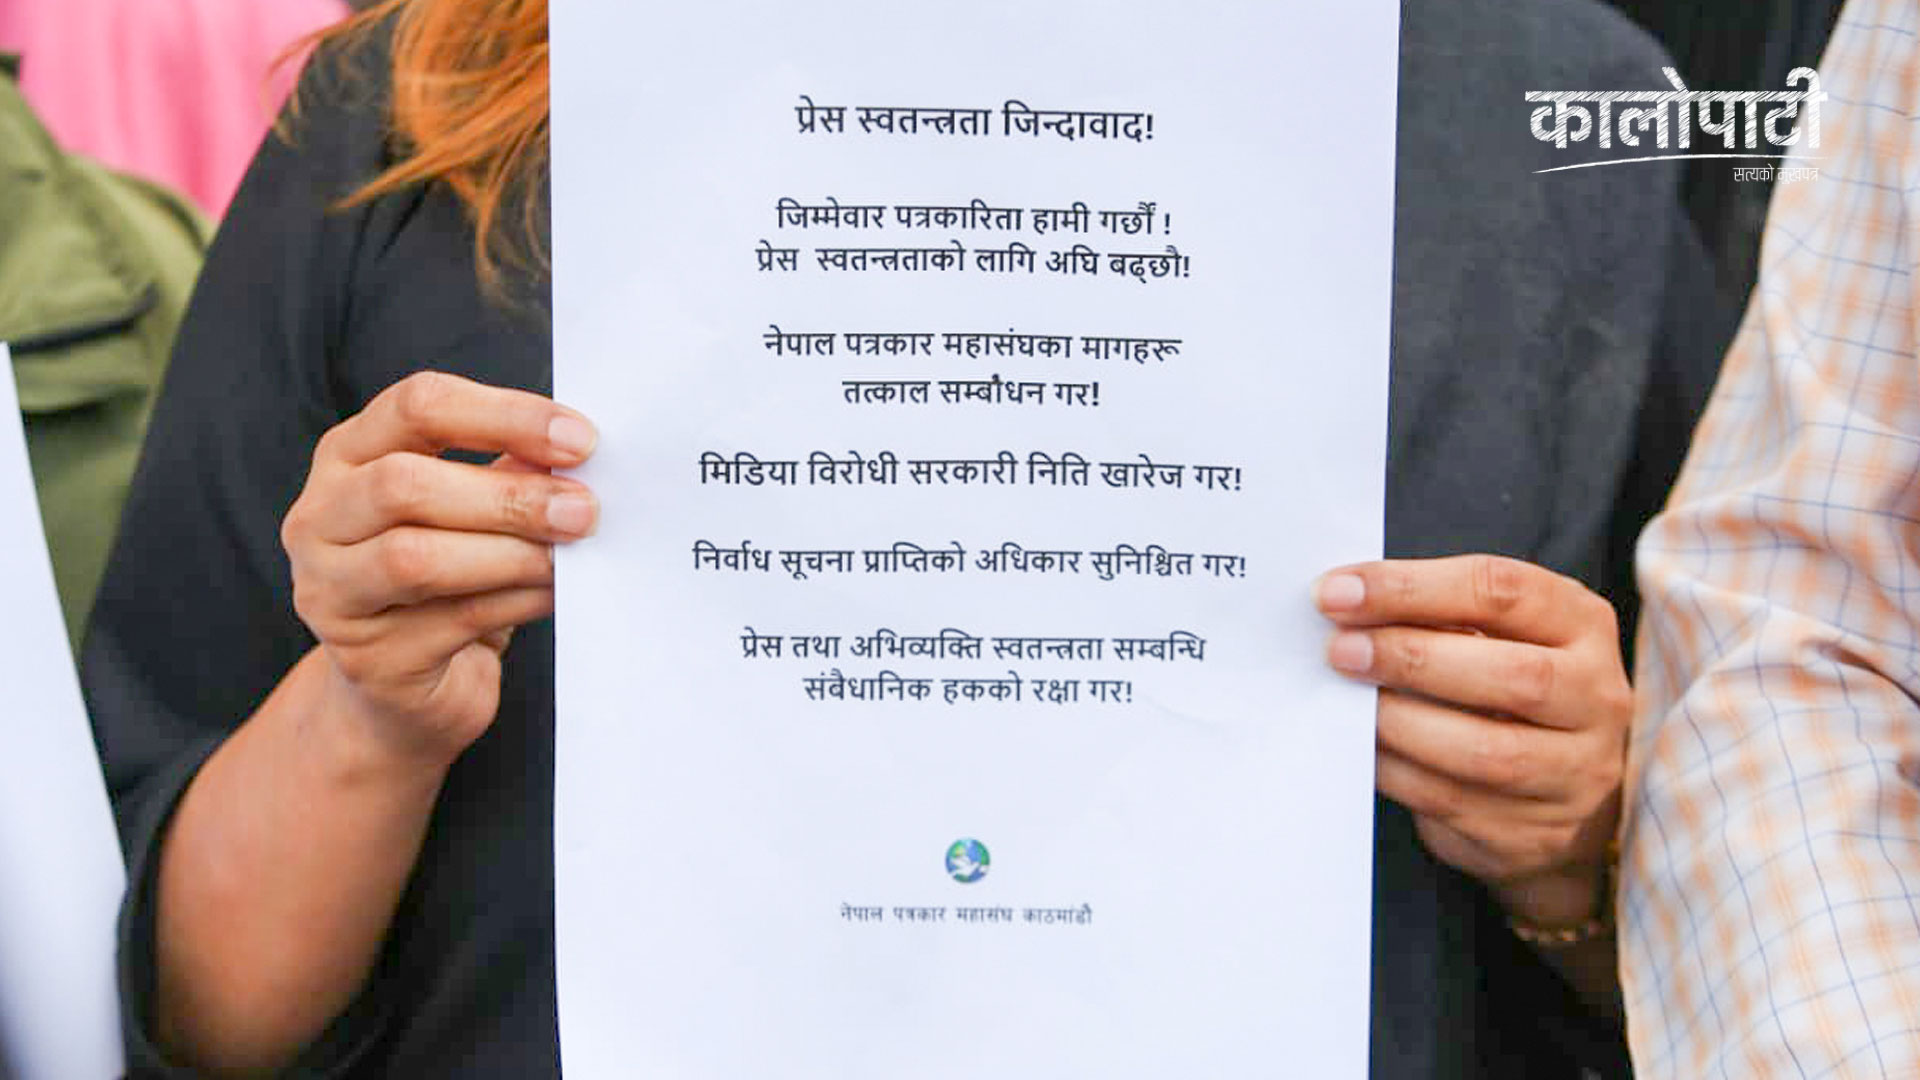 कालोपाटी
सत्यको मुखपत्र
प्रेस स्वतन्त्रता जिन्दावाद!
जिम्मेवार पत्रकारिता हामी गर्छौं !
प्रेस स्वतन्त्रताको लागि अघि बढ्छौ!
नेपाल पत्रकार महासंघका मागहरू
तत्काल सम्बोधन गर!
मिडिया विरोधी सरकारी निति खारेज गर!
निर्वाध सूचना प्राप्तिको अधिकार सुनिश्चित गर!
प्रेस तथा अभिव्यक्ति स्वतन्त्रता सम्बन्धि
संबैधानिक हकको रक्षा गर!
नेपाल पत्रकार महासंघ काठमांडौ